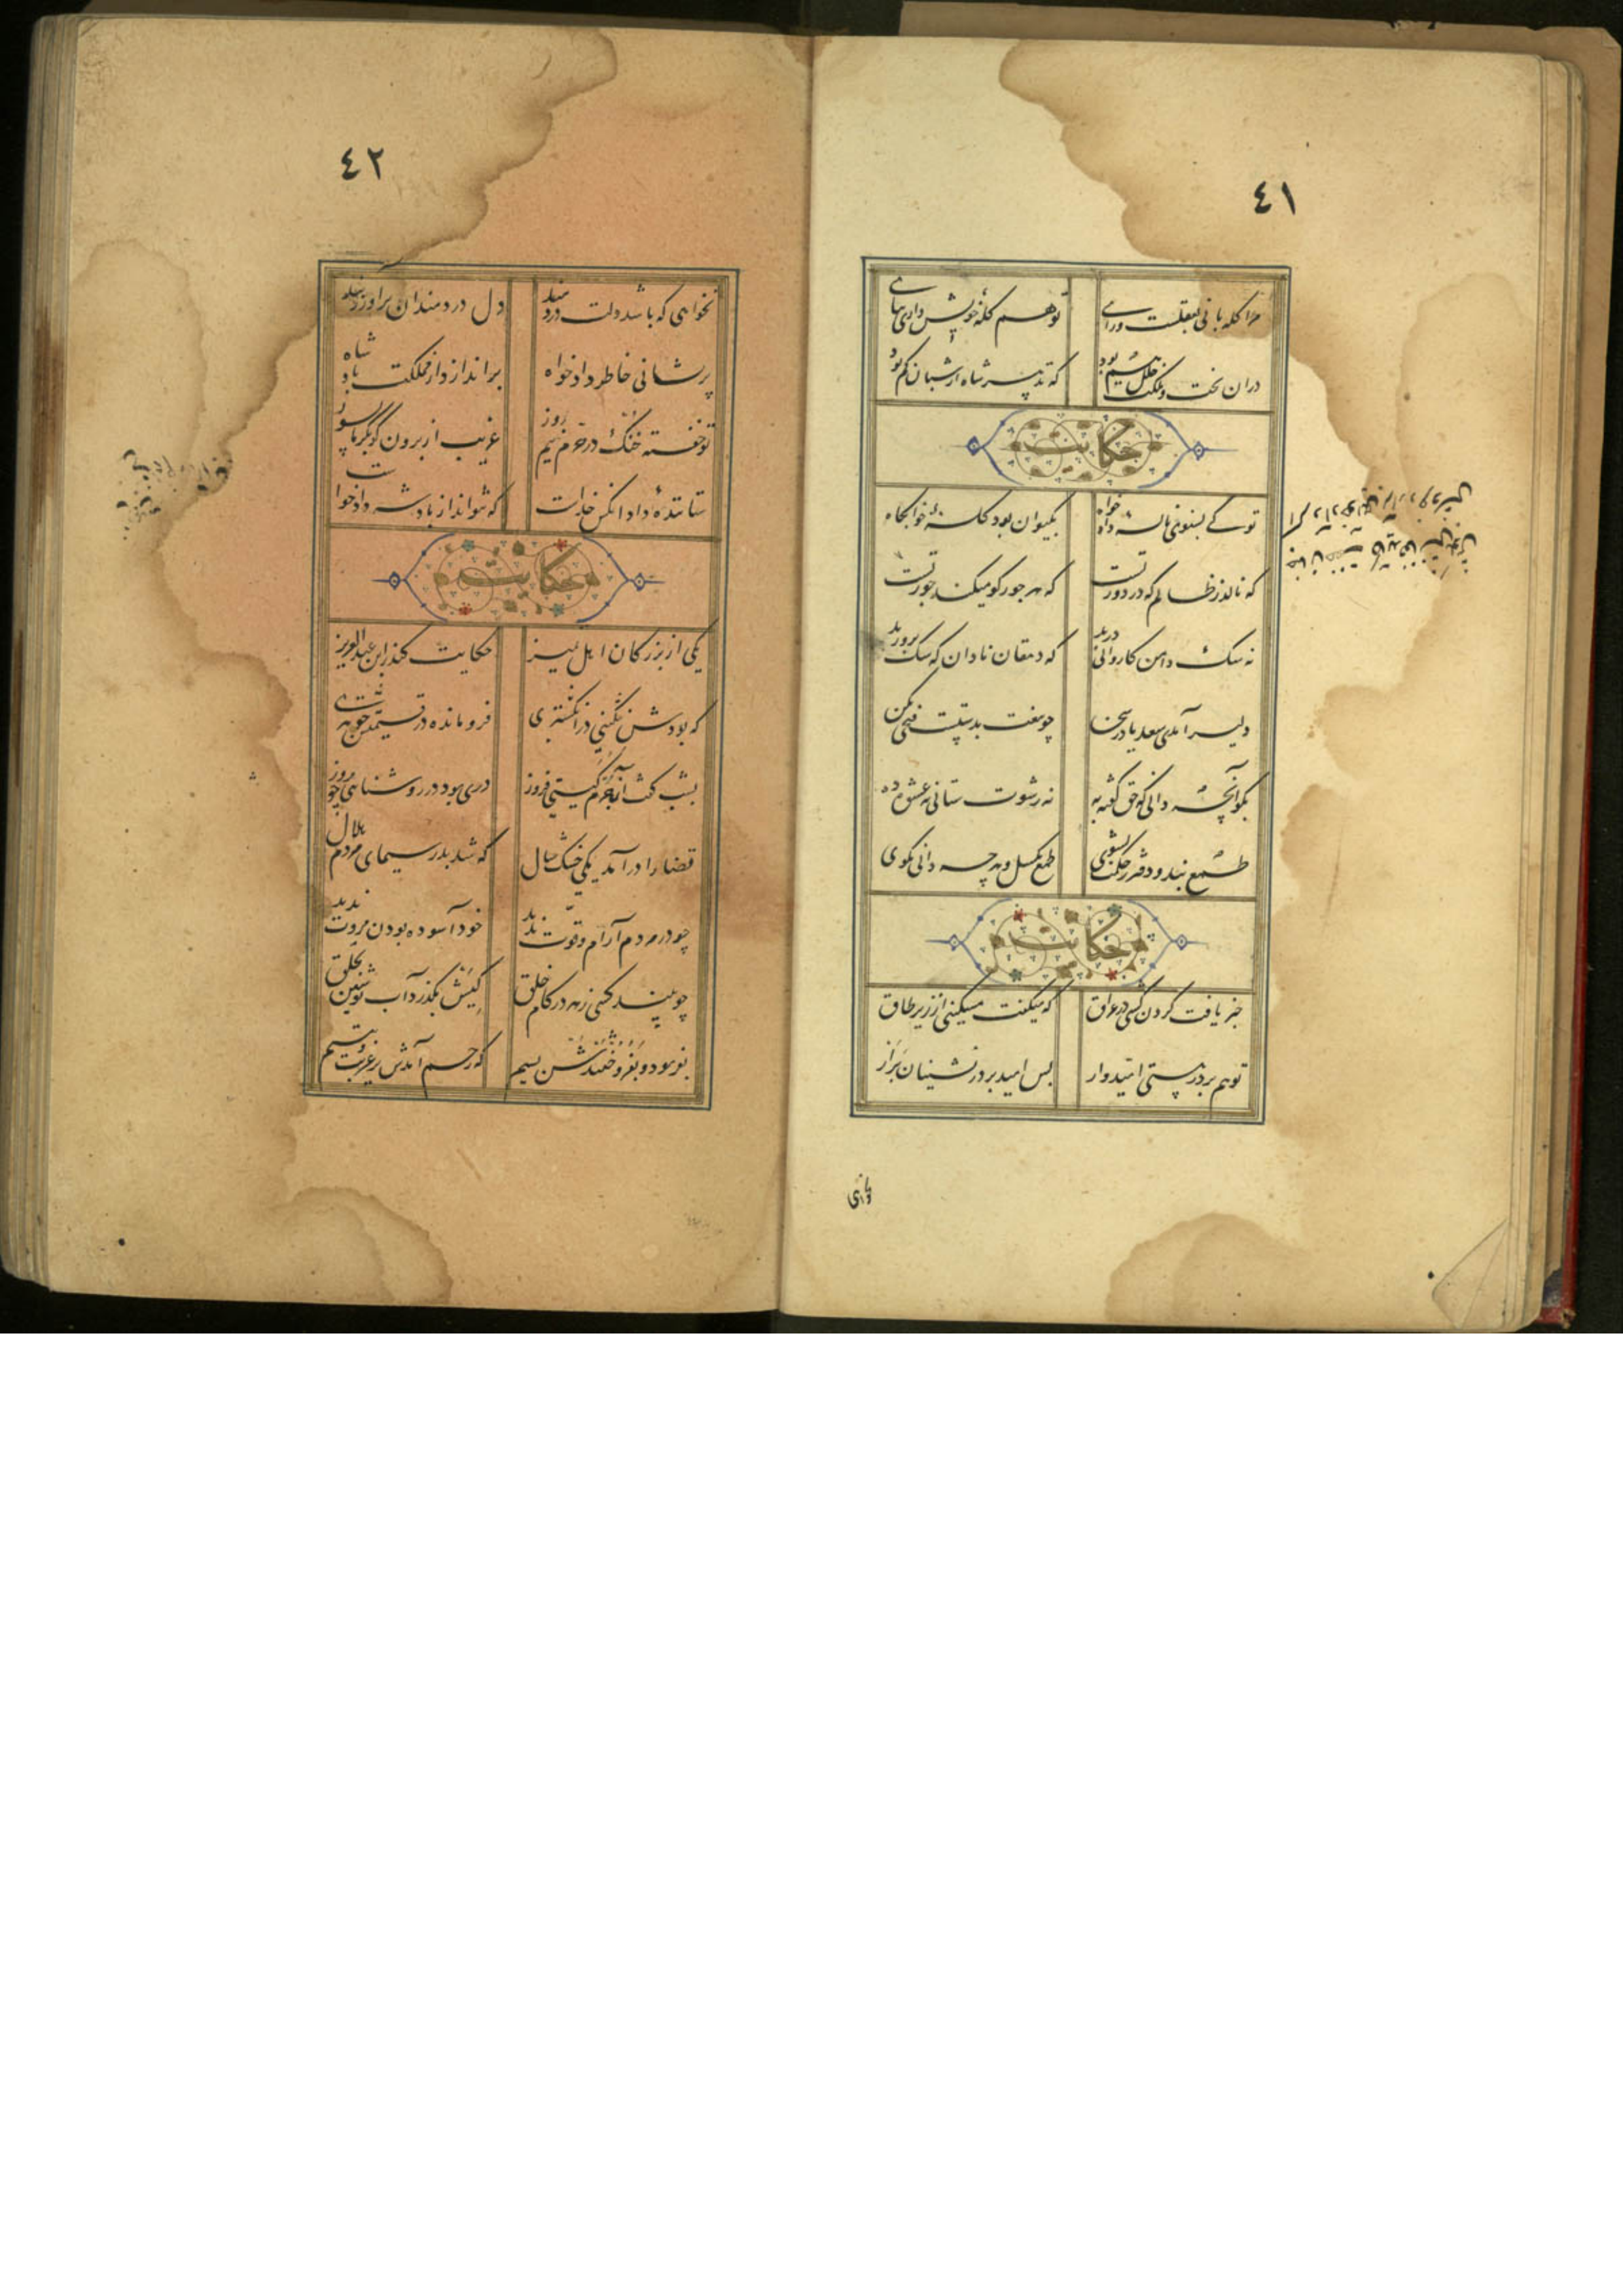 ٤١
مرا گله بانی بعقلست و رای
تو هم گله خویش داری بپای
دران تخت و ملک خلل غم بود
که تدبیر شاه از شبان کم بود
حکایت
تو کی بشنوی ناله داد خواه
بکیوان بود کله خوابگاه
که نالد ز ظالم که در دور تست
که هر جور کو میکند جور تست
نه سک دامن کاروانی درید
که دهقان نادان که سک پرورید
دلیر آمدی سعدیا در سخن
چو تیغت بدستست فتحی بکن
بگو آنچه دانی که حق گفته به
نه رشوت ستانی نه عشوه ده
طمع بند و دفتر ز حکمت بشوی
طمع بگسل و هر چه دانی بگوی
حکایت
خبر یافت گردن کشی در عراق
که میگفت مسکینی از زیر طاق
تو هم بر دری هستی امیدوار
پس امید بر در نشینان برار
٤٢
نخواهی که باشد دلت دردمند
دل دردمندان براور ز بند
پریشانی خاطر داد خواه
براندازد از مملکت پادشاه
تو خفته خنک در حرم نیم روز
غریب از برون کو بگرما بسوز
ستاننده داد انکس خداست
که نتواند از پادشه داد خواست
حکایت
یکی از بزرکان اهل تمیز
حکایت کند ز ابن عبدالعزیز
که بودش نکینی در انکشتری
فرو مانده در قیمتش جوهری
بشب کفتی آن جرم کیتی فروز
دری بود در روشنایی چو روز
قضا را درآمد یکی خشک سال
که شد بدر سیمای مردم هلال
چو در مردم آرام و قوت ندید
خود آسوده بودن مروت ندید
چو بیند کسی زهر در کام خلق
کیش بگذرد آب نوشین بحلق
بفرمود و بفروختندش بسیم
که رحم آمدش بر غریب و یتیم